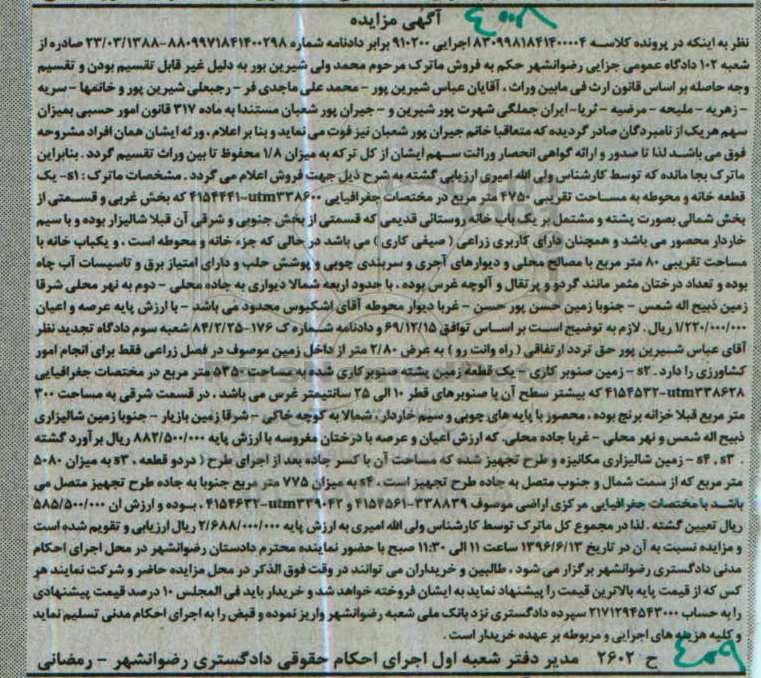 آگهی مزایده
نظر به اینکه در پرونده کلاسه ۸۳۰۹۹۸۱۸۴۱۴۰۰۰۰۴ اجرایی ۹۱۰۲۰۰ برابر دادنامه شماره ۸۸۰۹۹۷۱۸۴۱۴۰۰۲۹۸-۲۳/۰۳/۱۳۸۸ صادره از
شعبه ۱۰۲ دادگاه عمومی جزایی رضوانشهر حکم به فروش ماترک مرحوم محمد ولی شیرین پور به دلیل غیر قابل تقسیم بودن و تقسیم
وجه حاصله بر اساس قانون ارث فی مابین وراث ، آقایان عباس شیرین پور - محمد علی ماجدی فر - رجبعلی شیرین پور و خانمها - سریه
- زهریه - ملیحه - مرضیه - ثریا- ایران جملگی شهرت پور شیرین و - جیران پور شعبان مستندا به ماده ۳۱۷ قانون امور حسبی بمیزان
سهم هریک از نامبردگان صادر گردیده که متعاقبا خانم جیران پور شعبان نیز فوت می نماید و بنا بر اعلام ، ورثه ایشان همان افراد مشروحه
فوق می باشد لذا تا صدور و ارائه گواهی انحصار وراثت سهم ایشان از کل ترکه به میزان ۱/۸ محفوظ تا بین وراث تقسیم گردد . بنابراین
ماترک بجا مانده که توسط کارشناس ولی الله امیری ارزیابی گشته به شرح ذیل جهت فروش اعلام می گردد . مشخصات ماترک : s۱- یک
قطعه خانه و محوطه به مساحت تقریبی ۴۷۵۰ متر مربع در مختصات جغرافیایی utm۳۳۸۶۰۰-۴۱۵۴۴۴۱ که بخش غربی و قسمتی از
بخش شمالی بصورت پشته و مشتمل بر یک باب خانه روستائی قدیمی که قسمتی از بخش جنوبی و شرقی آن قبلا شالیزار بوده و با سیم
خاردار محصور می باشد و همچنان دارای کاربری زراعی ( صیفی کاری ) می باشد در حالی که جزء خانه و محوطه است . و یکباب خانه با
مساحت تقریبی ۸۰ متر مربع با مصالح محلی و دیوارهای آجری و سربندی چوبی و پوشش حلب و دارای امتیاز برق و تاسیسات آب چاه
بوده و تعداد درختان مثمر مانند گردو و پرتقال و آلوچه غرس بوده ، با حدود اربعه شمالا دیواری به جاده محلی - دوم به نهر محلی شرقا
زمین ذبیح اله شمس - جنوبا زمین حسن پور حسن - غربا دیوار محوطه آقای اشکبوس محدود می باشد - با ارزش پایه عرصه و اعیان
۱/۲۲۰/۰۰۰/۰۰۰ ریال . لازم به توضیح است بر اساس توافق ۶۹/۱۲/۱۵ و دادنامه شماره ک ۱۷۶-۸۴/۲/۲۵ شعبه سوم دادگاه تجدید نظر
آقای عباس شیرین پور حق تردد ارتفاقی ( راه وانت رو ) به عرض ۲/۸۰ متر از داخل زمین موصوف در فصل زراعی فقط برای انجام امور
کشاورزی را دارد . s۲ - زمین صنوبر کاری - یک قطعه زمین پشته صنوبر کاری شده به مساحت ۵۳۵۰ متر مربع در مختصات جغرافیایی
utm۳۳۸۶۲۸-۴۱۵۴۵۳۲ که بیشتر سطح آن با صنوبرهای قطر ۱۰ الی ۲۵ سانتیمتر غرس می باشد ، در قسمت شرقی به مساحت ۳۰۰
متر مربع قبلا خزانه برنج بوده ، محصور با پایه های چوبی و سیم خاردار ، شمالا به کوچه خاکی - شرقا زمین بازیار - جنوبا زمین شالیزاری
ذبیح اله شمس و نهر محلی - غربا جاده محلی، که ارزش اعیان و عرصه با درختان مغروسه با ارزش پایه ۸۸۲/۵۰۰/۰۰۰ ریال برآورد گشته
. s۴ , s۳ - زمین شالیزاری مکانیزه و طرح تجهیز شده که مساحت آن با کسر جاده بعد از اجرای طرح ( در دو قطعه ، s۳ به میزان ۵۰۸۰
متر مربع که از سمت شمال و جنوب متصل به جاده طرح تجهیز است . s۴ به میزان ۷۷۵ متر مربع جنوبا به جاده طرح تجهیز متصل می
باشد با مختصات جغرافیایی مرکزی اراضی موصوف ۳۳۸۸۳۹-۴۱۵۴۵۶۱ و utm۳۳۹۰۴۲-۴۱۵۴۶۳۲ ، بوده و ارزش ان ۵۸۵/۵۰۰/۰۰۰
ریال تعیین گشته . لذا در مجموع کل ماترک توسط کارشناس ولی الله امیری به ارزش پایه ۲/۶۸۸/۰۰۰/۰۰۰ ریال ارزیابی و تقویم شده است
و مزایده نسبت به آن در تاریخ ۱۳۹۶/۶/۱۳ ساعت ۱۱ الی ۱۱:۳۰ صبح با حضور نماینده محترم دادستان رضوانشهر در محل اجرای احکام
مدنی دادگستری رضوانشهر برگزار می شود ، طالبین و خریداران می توانند در وقت فوق الذکر در محل مزایده حاضر و شرکت نمایند هر
کس که از قیمت پایه بالاترین قیمت را پیشنهاد نماید به ایشان فروخته خواهد شد و خریدار باید فی المجلس ۱۰ درصد قیمت پیشنهادی
را به حساب ۲۱۷۱۲۹۴۵۴۳۰۰۰ سپرده دادگستری نزد بانک ملی شعبه رضوانشهر واریز نموده و قبض را به اجرای احکام مدنی تسلیم نماید
و کلیه هزینه های اجرایی و مربوطه بر عهده خریدار است .
ح ۲۶۰۲ مدیر دفتر شعبه اول اجرای احکام حقوقی دادگستری رضوانشهر - رمضانی